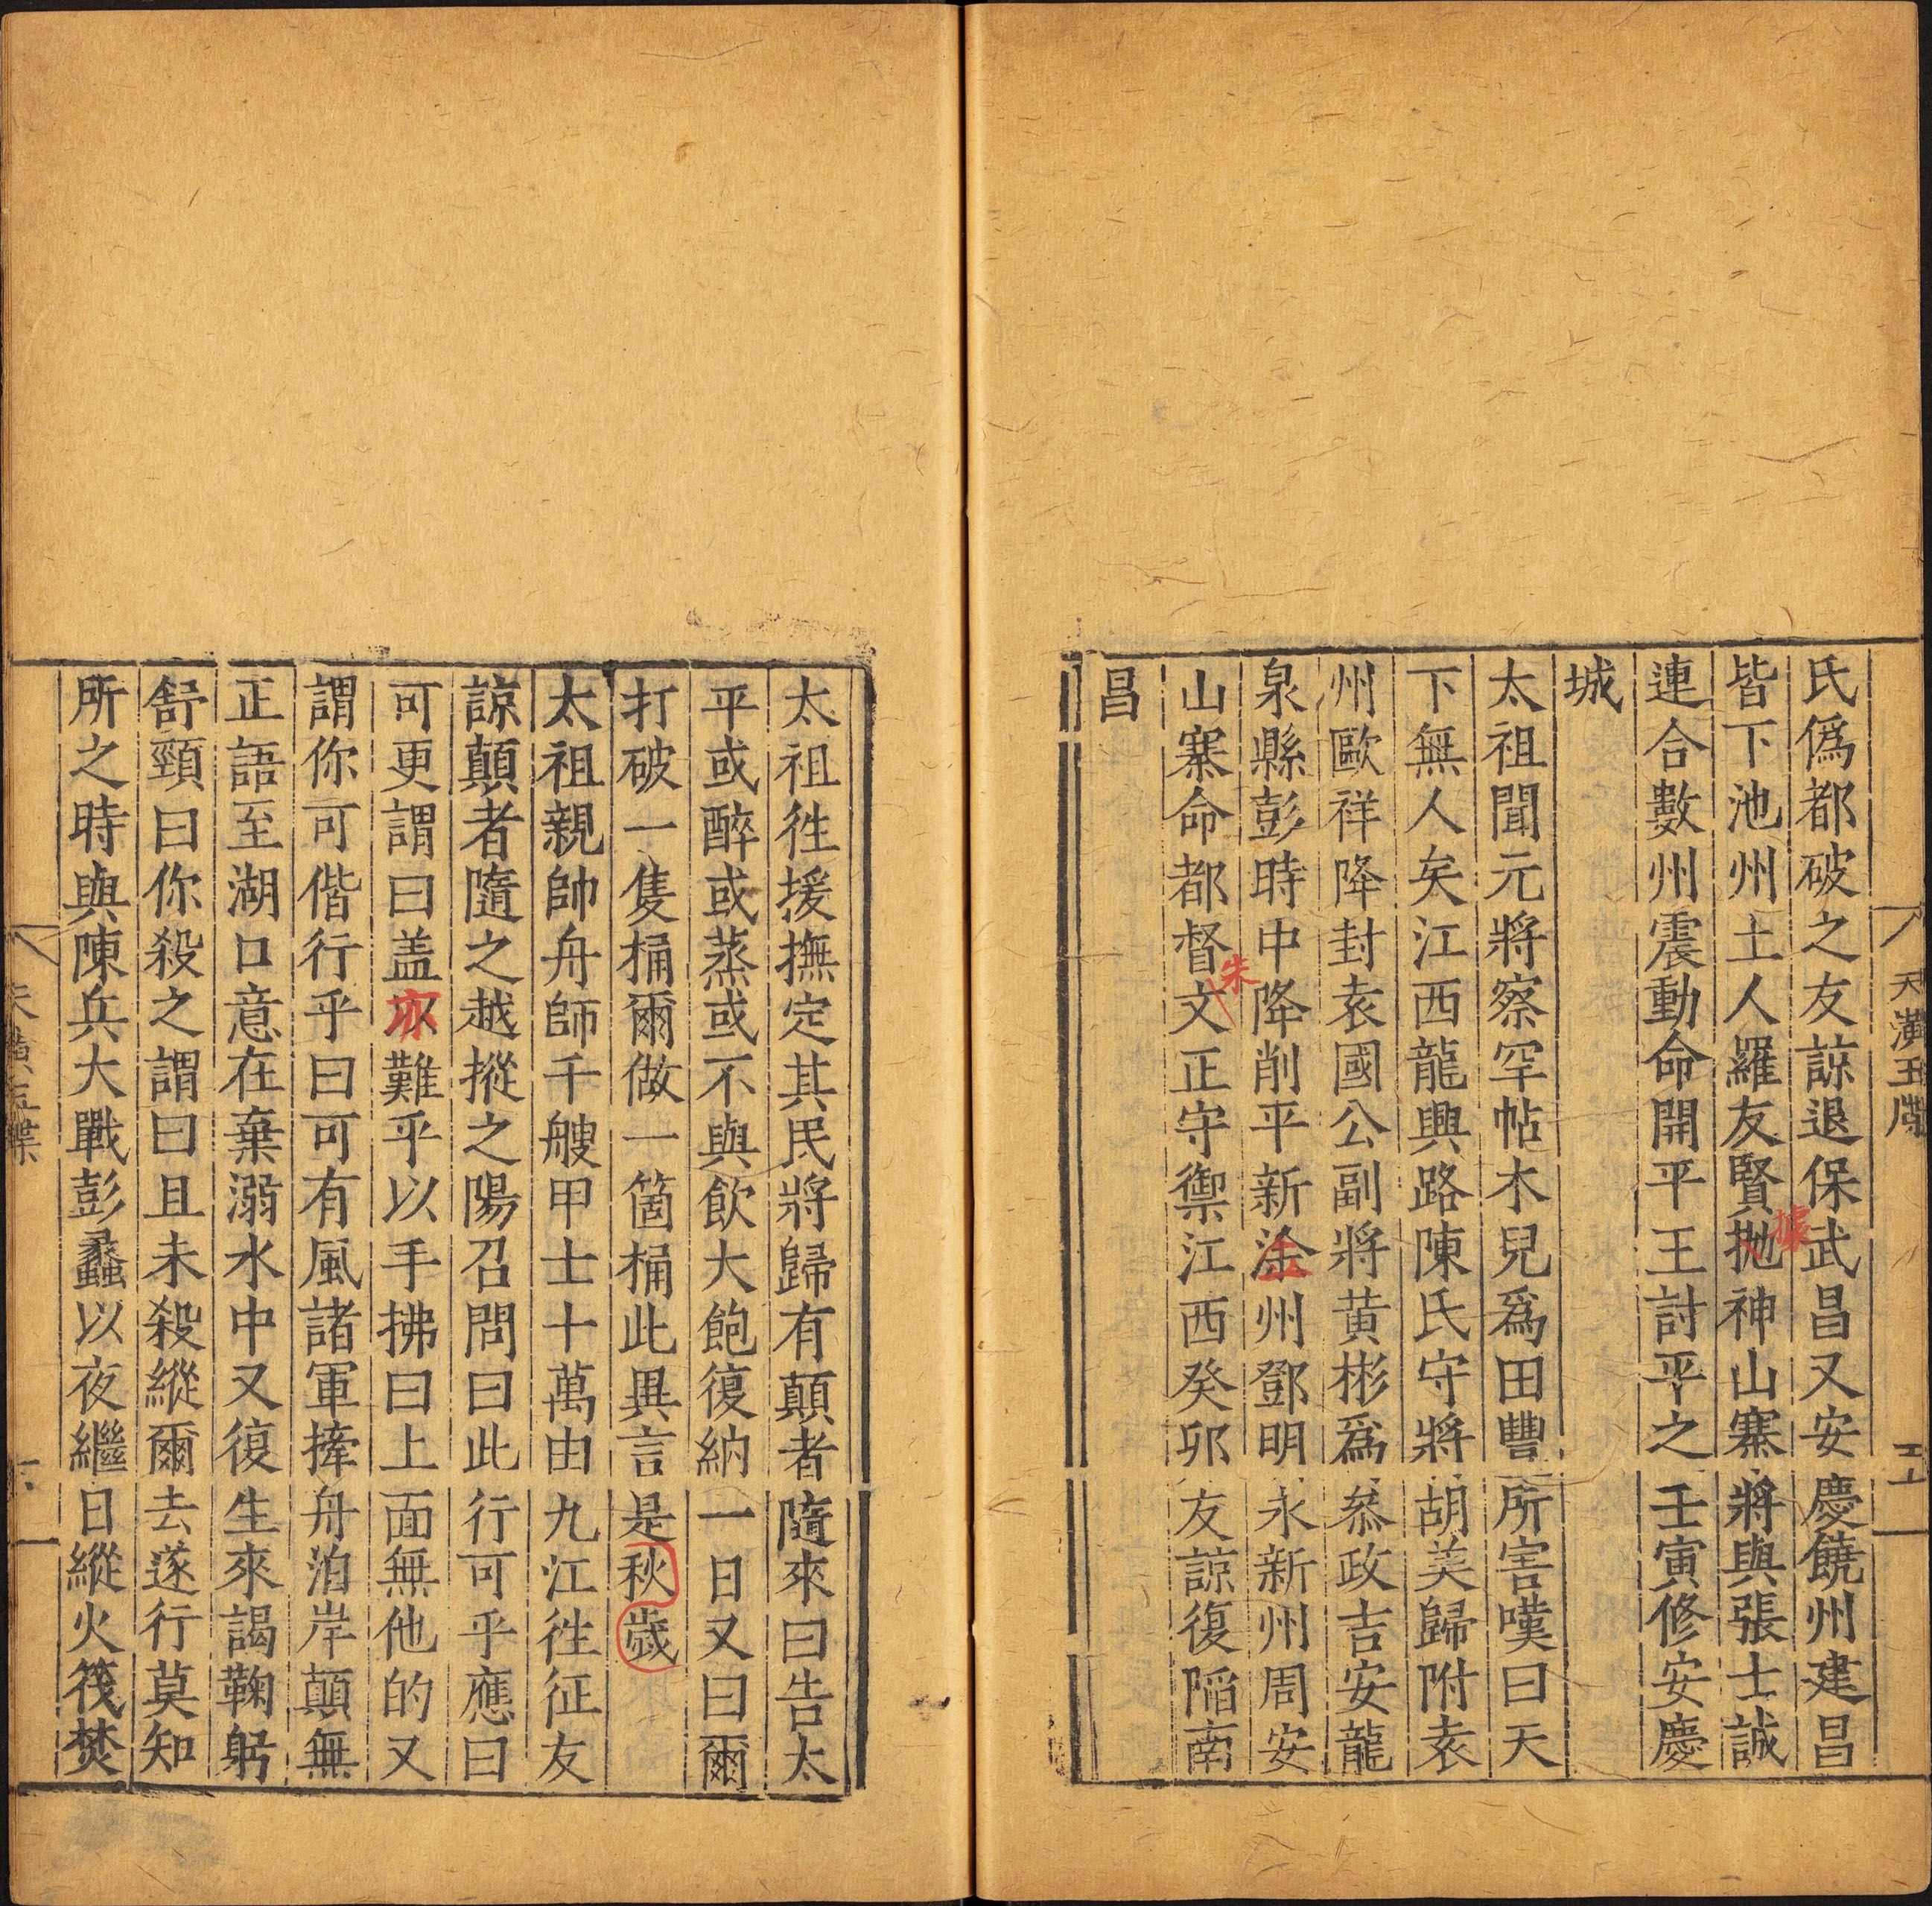 天潢玉牒
五
氏偽都破之友諒退保武昌又安慶饒州建昌
皆下池州土人羅友賢拋神山寨將與張士誠
據
連合數州震動命開平王討平之壬寅修安慶
城
太祖聞元將察罕帖木兒爲田豐所害嘆曰天
下無人矣江西龍興路陳氏守將胡美歸附袁
州歐祥降封袁國公副將黄彬爲叅政吉安龍
泉縣彭時中降削平新淦州鄧明永新州周安
山寨命都督文正守禦江西癸卯友諒復陷南
朱
昌
太祖徃援撫定其民將歸有顛者隨來曰告太
平或醉或蒸或不與飲大飽復納一日又曰爾
打破一隻桶爾做一箇桶此異言是秋歲
太祖親帥舟師千艘甲士十萬由九江徃征友
諒顛者隨之越摐之陽召問曰此行可乎應曰
可更謂曰盖亦難乎以手拂曰上面無他的又
謂你可偕行乎曰可有風諸軍撁舟泊岸顛無
正語至湖口意在棄溺水中又復生來謁鞠躬
舒頸曰你殺之謂曰且未殺縱爾去遂行莫知
所之時與陳兵大戰彭蠡以夜繼日縱火筏焚
天潢玉牒